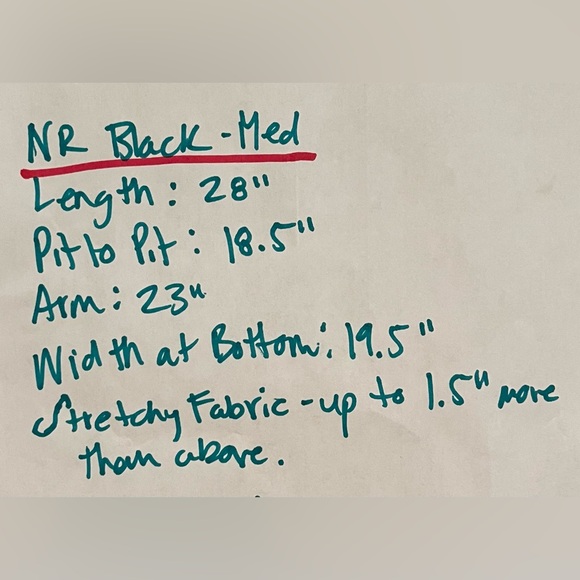 NR Black - Med
Length: 28"
Pit to Pit: 18.5"
Arm: 23"
Width at Bottom: 19.5"
Stretchy Fabric - up to 1.5" more
than above.